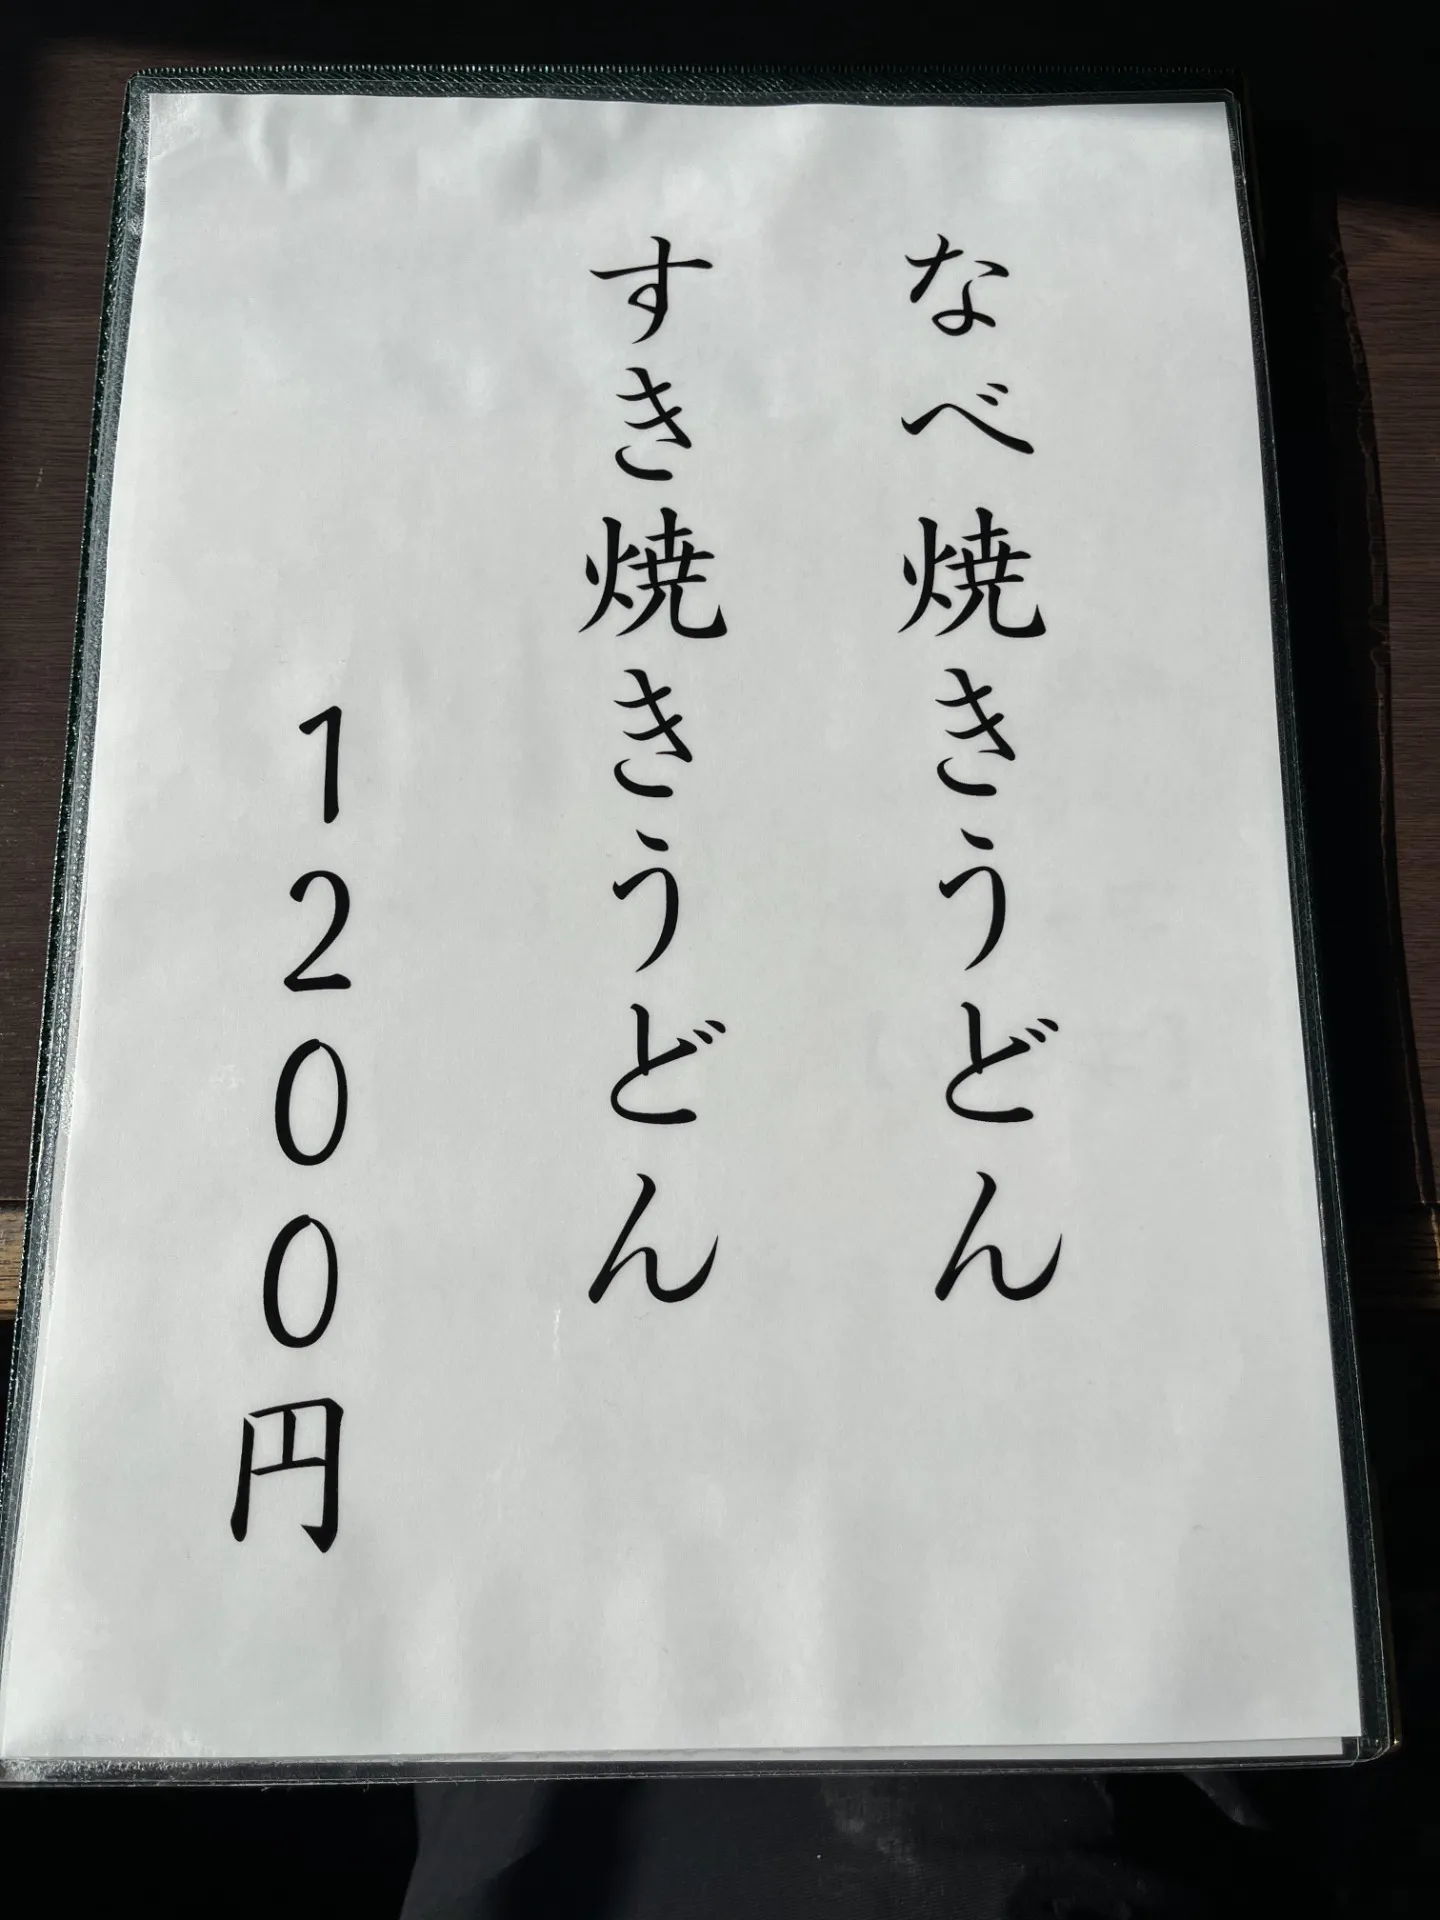 なべ焼きうどん
すき焼きうどん
1200円